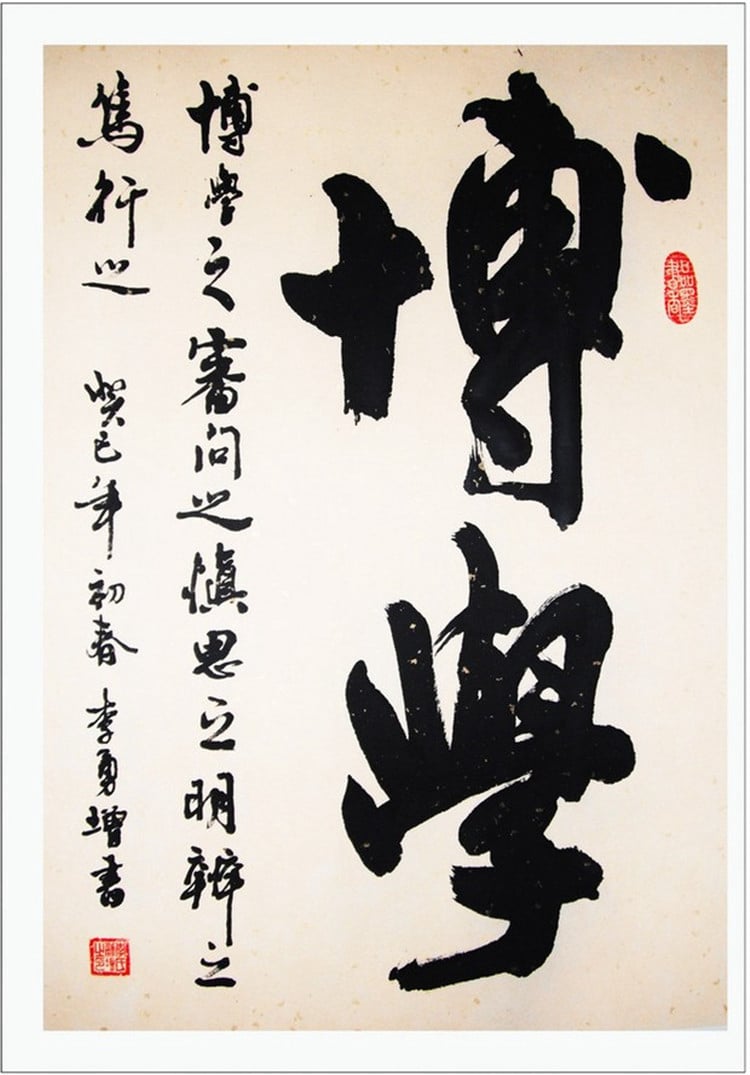 博學
博學之審問之慎思之明辨之
篤行之 癸巳年初春 李勇增書